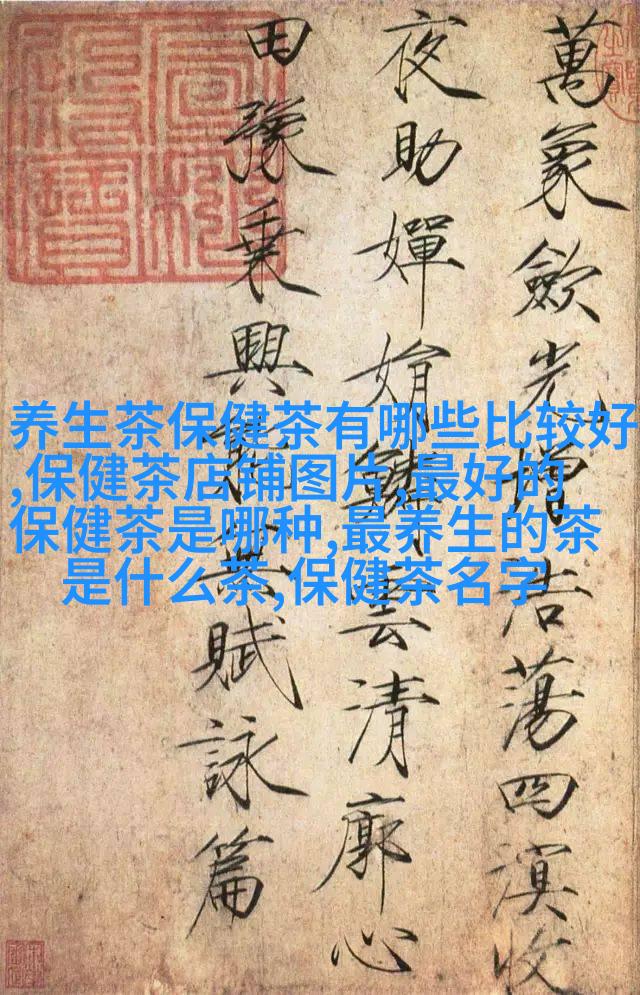 萬象歛光增浩蕩四溟收
夜助嬋娟鱗雲清廓心
田豫乗興能無賦詠篇
养生茶保健茶有哪些比较好
,保健茶店铺图片,最好的
保健茶是哪种,最养生的茶
是什么茶,保健茶名字